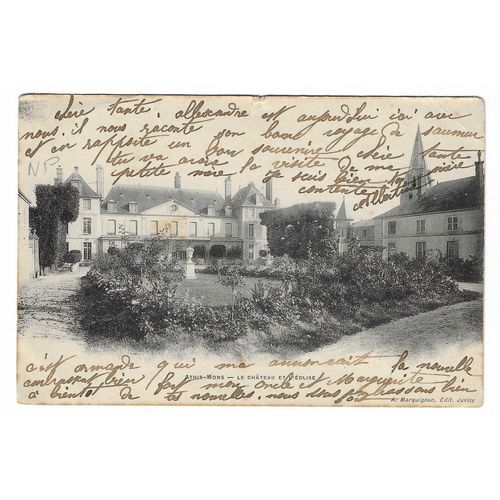 chère tante, allexandre est aujourd'hui ici avec
nous. il nous raconte son beau voyage de saumur
et en rapporte un bon souvenire chère tante
tu va avoir la visite de ma
petite mère je suis bien
contente
ATHIS-MONS — LE CHÂTEAU ET L'ÉGLISE
c'est qui ma annoncait la nouvelle
embrassat bien fort mon oncle et Marguerite
a bientôt de tes nouvelles, nous vous embrassons bien
A. Marquignon, Edit. Juvisy
NP